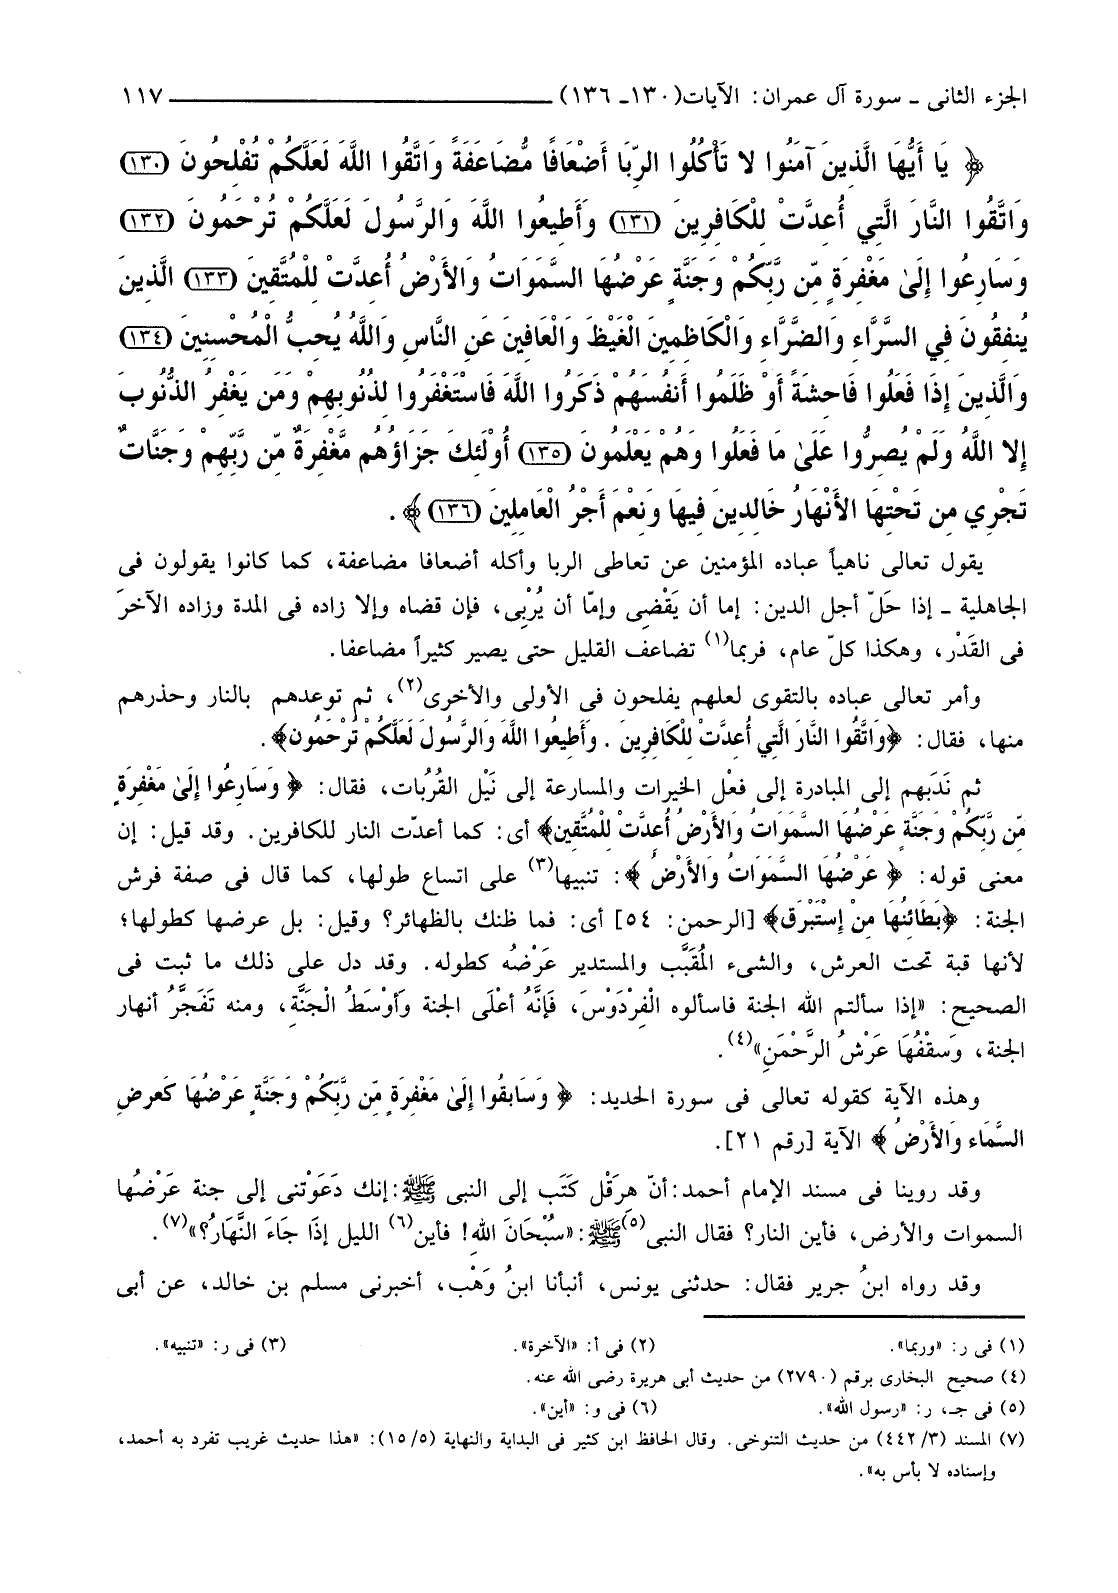 الجزء الثانى ـ سورة آل عمران: الآيات(١٣٠ـ ١٣٦) ــــــــــــــــــــ ١١٧
﴿ يَا أَيُّهَا الَّذِينَ آمَنُوا لا تَأْكُلُوا الرِّبَا أَضْعَافًا مُّضَاعَفَةً وَاتَّقُوا اللَّهَ لَعَلَّكُمْ تُفْلِحُونَ (١٣٠)
وَاتَّقُوا النَّارَ الَّتِي أُعِدَّتْ لِلْكَافِرِينَ (١٣١) وَأَطِيعُوا اللَّهَ وَالرَّسُولَ لَعَلَّكُمْ تُرْحَمُونَ (١٣٢)
وَسَارِعُوا إِلَىٰ مَغْفِرَةٍ مِّن رَّبِّكُمْ وَجَنَّةٍ عَرْضُهَا السَّمَوَاتُ وَالأَرْضُ أُعِدَّتْ لِلْمُتَّقِينَ (١٣٣) الَّذِينَ
يُنفِقُونَ فِي السَّرَّاءِ وَالضَّرَّاءِ وَالْكَاظِمِينَ الْغَيْظَ وَالْعَافِينَ عَنِ النَّاسِ وَاللَّهُ يُحِبُّ الْمُحْسِنِينَ (١٣٤)
وَالَّذِينَ إِذَا فَعَلُوا فَاحِشَةً أَوْ ظَلَمُوا أَنفُسَهُمْ ذَكَرُوا اللَّهَ فَاسْتَغْفَرُوا لِذُنُوبِهِمْ وَمَن يَغْفِرُ الذُّنُوبَ
إِلا اللَّهُ وَلَمْ يُصِرُّوا عَلَىٰ مَا فَعَلُوا وَهُمْ يَعْلَمُونَ (١٣٥) أُوْلَئِكَ جَزَاؤُهُم مَّغْفِرَةٌ مِّن رَّبِّهِمْ وَجَنَّاتٌ
تَجْرِي مِن تَحْتِهَا الأَنْهَارُ خَالِدِينَ فِيهَا وَنِعْمَ أَجْرُ الْعَامِلِينَ (١٣٦)﴾ .
يقول تعالى ناهياً عباده المؤمنين عن تعاطى الربا وأكله أضعافا مضاعفة، كما كانوا يقولون فى
الجاهلية ـ إذا حَلّ أجل الدين: إما أن يَقْضِى وإمّا أن يُرْبِى، فإن قضاه وإلا زاده فى المدة وزاده الآخرَ
فى القَدْر، وهكذا كلّ عام، فربما(١) تضاعف القليل حتى يصير كثيراً مضاعفا.
وأمر تعالى عباده بالتقوى لعلهم يفلحون فى الأولى والأخرى(٢)، ثم توعدهم بالنار وحذرهم
منها، فقال: ﴿وَاتَّقُوا النَّارَ الَّتِي أُعِدَّتْ لِلْكَافِرِينَ . وَأَطِيعُوا اللَّهَ وَالرَّسُولَ لَعَلَّكُمْ تُرْحَمُونَ﴾.
ثم نَدَبَهم إلى المبادرة إلى فعْل الخيرات والمسارعة إلى نَيْل القُرُبات، فقال: ﴿ وَسَارِعُوا إِلَىٰ مَغْفِرَةٍ
مِّن رَّبِّكُمْ وَجَنَّةٍ عَرْضُهَا السَّمَوَاتُ وَالأَرْضُ أُعِدَّتْ لِلْمُتَّقِينَ﴾ أى: كما أعدّت النار للكافرين. وقد قيل: إن
معنى قوله: ﴿ عَرْضُهَا السَّمَوَاتُ وَالأَرْضُ ﴾: تنبيها(٣) على اتساع طولها، كما قال فى صفة فرش
الجنة: ﴿بَطَائِنُهَا مِنْ إِسْتَبْرَقٍ﴾ [الرحمن: ٥٤] أى: فما ظنك بالظهائر؟ وقيل: بل عرضها كطولها؛
لأنها قبة تحت العرش، والشىء المُقَبَّب والمستدير عَرْضُه كطوله. وقد دل على ذلك ما ثبت فى
الصحيح: «إذا سألتم الله الجنة فاسألوه الْفِرْدَوْسَ، فَإنَّهُ أعْلَى الجنة وَأوْسَطُ الْجَنَّةِ، ومنه تَفَجَّرُ أنهار
الجنة، وَسقْفُهَا عَرْشُ الرَّحْمَنِ»(٤).
وهذه الآية كقوله تعالى فى سورة الحديد: ﴿ وَسَابِقُوا إِلَىٰ مَغْفِرَةٍ مِّن رَّبِّكُمْ وَجَنَّةٍ عَرْضُهَا كَعَرضِ
السَّمَاءِ وَالأَرْضُ ﴾ الآية [رقم ٢١].
وقد روينا فى مسند الإمام أحمد: أنّ هِرَقْل كَتَب إلى النبى ﷺ: إنك دَعَوْتنى إلى جنة عَرْضُها
السموات والأرض، فأين النار؟ فقال النبى(٥)ﷺ: «سُبْحَانَ اللهِ! فأين(٦) الليل إذَا جَاءَ النَّهَارُ؟»(٧).
وقد رواه ابنُ جرير فقال: حدثنى يونس، أنبأنا ابنُ وَهْب، أخبرنى مسلم بن خالد، عن أبى
(١) فى ر: «وربما». (٢) فى أ: «الآخرة». (٣) فى ر: «تنبيه».
(٤) صحيح البخارى برقم (٢٧٩٠) من حديث أبى هريرة رضى الله عنه.
(٥) فى جـ، ر: «رسول الله». (٦) فى و: «أين».
(٧) المسند (٣/ ٤٤٢) من حديث التنوخى. وقال الحافظ ابن كثير فى البداية والنهاية (٥/ ١٥): «هذا حديث غريب تفرد به أحمد،
وإسناده لا بأس به».